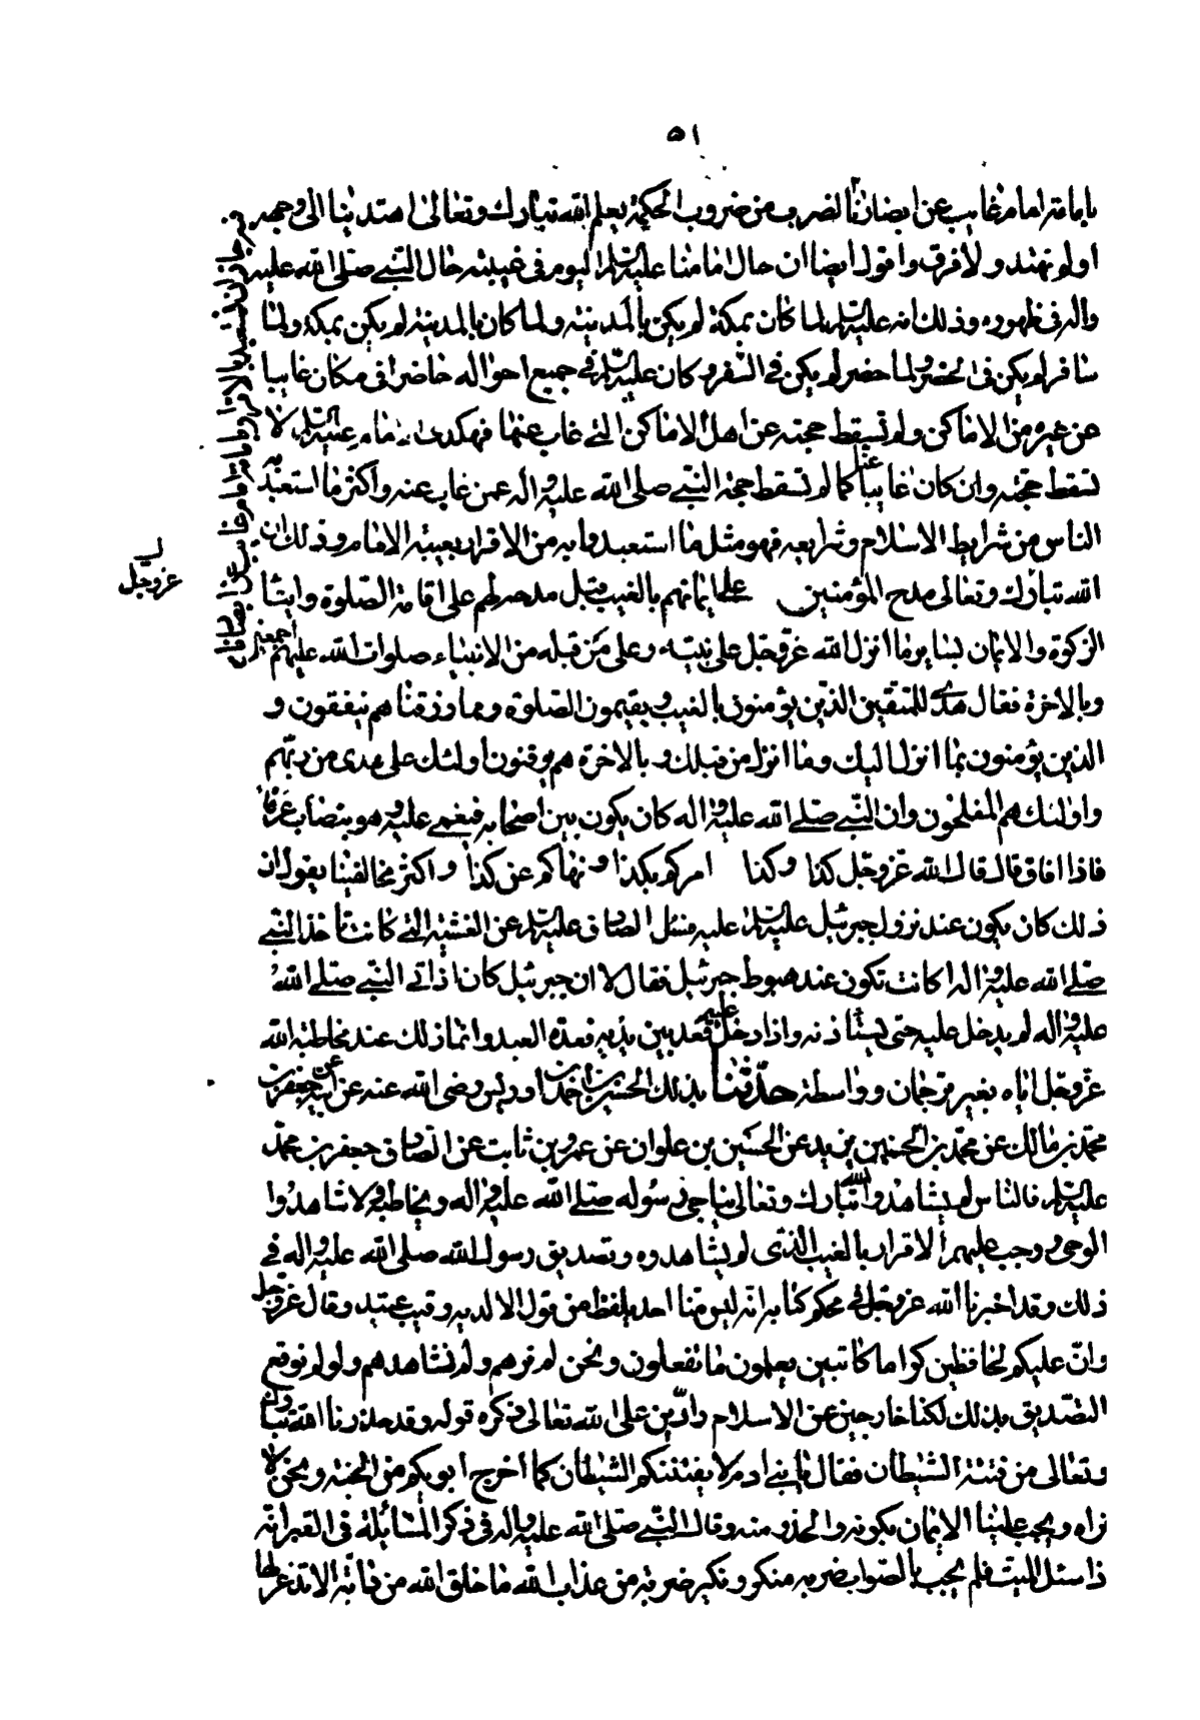 ٥١
بامامة امام غايب عن ابصارنا لضرب من ضروب الحكمة يعلمه الله تبارك وتعالى اهتدينا الى وجهه
او لم نهتد ولا فرق واقول ايضا ان حال امامنا عليه السلم اليوم فى غيبته حال النبى صلى الله عليه
واله فى ظهوره وذلك انه عليه السلم لما كان بمكة لم يكن بالمدينة ولما كان بالمدينة لم يكن بمكة ولما
سافر لم يكن فى الحضر ولما حضر لم يكن فى السفر وكان عليه السلم فى جميع احواله حاضرا فى مكان غايبا
عن غيره من الاماكن ولم تسقط حجته عن اهل الاماكن التى غاب عنها فهكذا الامام عليه السلم لا
تسقط حجته وان كان غايبا عنا كما لم تسقط حجة النبى صلى الله عليه واله عمن غاب عنه واكثر ما استعبد به
الناس من شرايط الاسلام وشرايعه فهو مثل ما استعبدوا به من الاقرار بغيبة الامام وذلك ان
الله تبارك وتعالى مدح المؤمنين على ايمانهم بالغيب قبل مدحه لهم على اقامة الصلوة وايتاء
الزكوة والايمان بساير ما انزل الله عزوجل على نبيه وعلى من قبله من الانبياء صلوات الله عليهم اجمعين
وبالاخرة فقال هدى للمتقين الذين يؤمنون بالغيب ويقيمون الصلوة ومما رزقناهم ينفقون و
الذين يؤمنون بما انزل اليك وما انزل من قبلك وبالاخرة هم يوقنون اولئك على هدى من ربهم
واولئك هم المفلحون وان النبى صلى الله عليه واله كان يكون بين اصحابه فيغمى عليه وهو يتصاب عرقا
فاذا افاق قال قال الله عزوجل كذا وكذا امركم بكذا ونهاكم عن كذا واكثر مخالفينا يقول ان
ذلك كان يكون عند نزول جبرئيل عليه السلم عليه فسئل الصادق عليه السلم عن الغشية التى كانت تاخذ النبى
صلى الله عليه واله اكانت تكون عند هبوط جبرئيل فقال لا ان جبرئيل كان اذا اتى النبى صلى الله
عليه واله لم يدخل عليه حتى يستاذنه واذا دخل عليه قعد بين يديه قعدة العبد وانما ذلك عند مخاطبة الله
عزوجل اياه بغير ترجمان وواسطة حدثنا بذلك الحسين بن احمد بن ادريس رضى الله عنه عن ابيه عن جعفر بن
محمد بن مالك عن محمد بن الحسين بن زيد عن الحسين بن علوان عن عمرو بن ثابت عن الصادق جعفر بن محمد
عليه السلم فالناس لم يشاهدوا الله تبارك وتعالى يناجى رسوله صلى الله عليه واله ويخاطبه ولا شاهدوا
الوحى ووجب عليهم الاقرار بالغيب الذى لم يشاهدوه وتصديق رسول الله صلى الله عليه واله فى
ذلك وقد اخبرنا الله عزوجل فى محكم كتابه انه ليس منا احد يلفظ من قول الا لديه رقيب عتيد وقال عزوجل
وان عليكم لحافظين كراما كاتبين يعلمون ما تفعلون ونحن لم نرهم ولم نشاهدهم ولو لم نوقع
التصديق بذلك لكنا خارجين عن الاسلام رادين على الله تعالى ذكره قوله وقد حذرنا الله تبارك
وتعالى من فتنة الشيطان فقال يا بنى ادم لا يفتننكم الشيطان كما اخرج ابويكم من الجنة ونحن لا
نراه ويجب علينا الايمان بكونه والحذر منه وقال النبى صلى الله عليه واله فى ذكر المسائلة فى القبر انه
ذا سئل الميت فلم يجب بالصواب ضربه منكر ونكير ضربة من عذاب الله ما خلق الله من دابة الا تذعر لها
ل
عزوجل